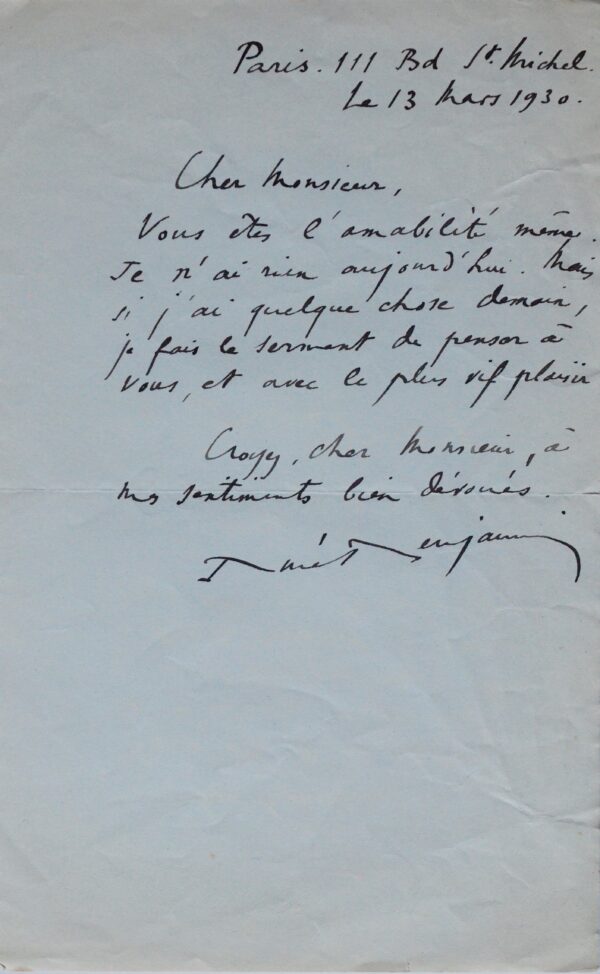 Paris. 111 Bd St. Michel.
Le 13 Mars 1930.
Cher Monsieur,
Vous êtes l'amabilité même.
Je n'ai rien aujourd'hui. Mais
si j'ai quelque chose demain,
je fais le serment de penser à
vous, et avec le plus vif plaisir
Croyez, cher Monsieur, à
mes sentiments bien dévoués.
René Benjamin